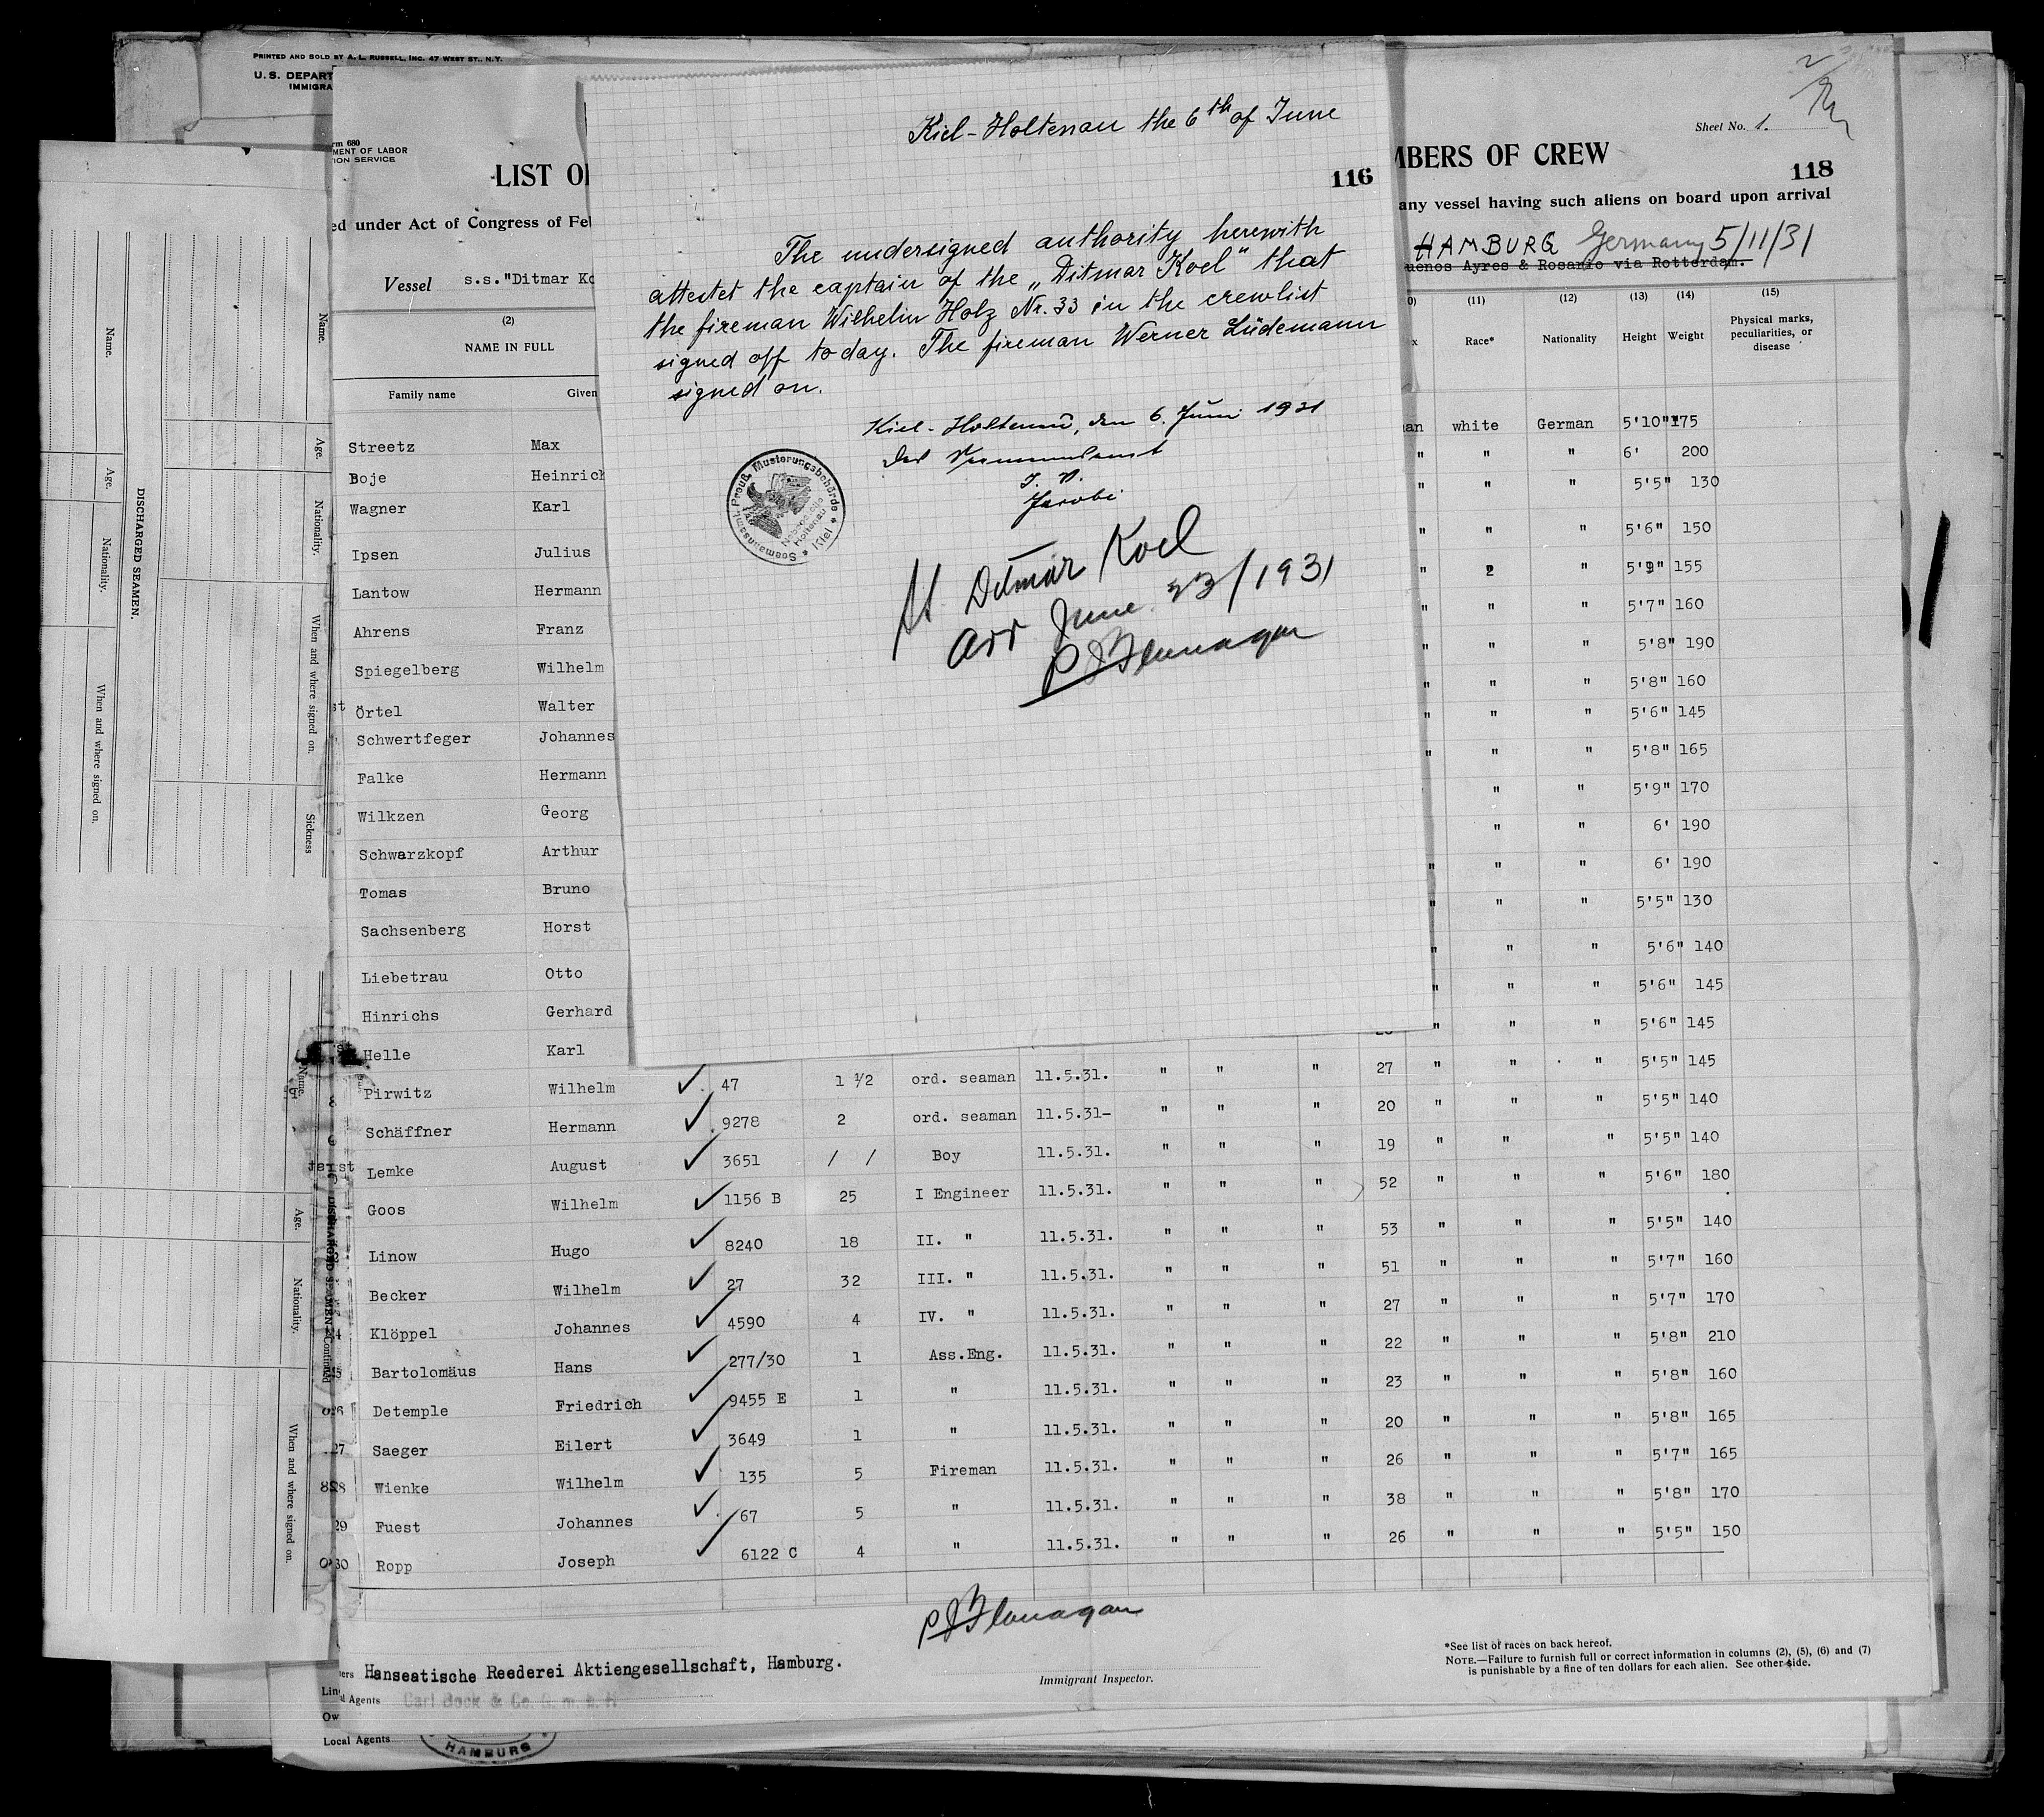 PRINTED AND SOLD BY A. L. RUSSELL, INC. 47 WEST ST., N.Y.
U.S. DEPART
IMMIGRA
rm 680
MENT OF LABOR
ION SERVICE
LIST O
MBERS OF CREW
Sheet No. 1.
118
ed under Act of Congress of Fe
any vessel having such aliens on board upon arrival
Vessel s.s."Ditmar Ko
HAMBURG Germany 5/11/31
uenos Ayres & Rosario via Rotterdam.
Kiel-Holtenau the 6th of June
116
The undersigned authority herewith
attestet the captain of the „Ditmar Koel" that
the fireman Wilhelm Holz Nr. 33 in the crewlist
signed off today. The fireman Werner Lüdemann
signed on.
Kiel-Holtenau, den 6. Juni 1931
Das Seemannsamt
J. V.
Jacobi
Seemannsamt. Preuß. Musterungsbehörde * Kiel *
Nebenstelle
Holtenau
St Ditmar Koel
arr June 23/1931
P J Flanagan
(2) (11) (12) (13) (14) (15)
NAME IN FULL Race* Nationality Height Weight Physical marks, peculiarities, or disease
Family name Given
Streetz Max an white German 5'10" 175
Boje Heinrich " " " 6' 200
Wagner Karl " " " 5'5" 130
Ipsen Julius " " " 5'6" 150
Lantow Hermann " " 5'9" 155
Ahrens Franz " " " 5'7" 160
Spiegelberg Wilhelm " " " 5'8" 190
Örtel Walter " " " 5'8" 160
Schwertfeger Johannes " " " 5'6" 145
Falke Hermann " " " 5'8" 165
Wilkzen Georg " " 5'9" 170
Schwarzkopf Arthur " " 6' 190
Tomas Bruno " " " 6' 190
Sachsenberg Horst " " " 5'5" 130
Liebetrau Otto " " " 5'6" 140
Hinrichs Gerhard " " " 5'6" 145
Helle Karl " " " 5'6" 145
Pirwitz Wilhelm ✓ 47 1 1/2 ord. seaman 11.5.31. " " " 27 " " " 5'5" 145
Schäffner Hermann ✓ 9278 2 ord. seaman 11.5.31- " " " 20 " " " 5'5" 140
Lemke August ✓ 3651 / / Boy 11.5.31. " " " 19 " " " 5'5" 140
Goos Wilhelm ✓ 1156 B 25 I Engineer 11.5.31. " " " 52 " " " 5'6" 180
Linow Hugo ✓ 8240 18 II. " 11.5.31. " " " 53 " " " 5'5" 140
Becker Wilhelm ✓ 27 32 III. " 11.5.31. " " " 51 " " " 5'7" 160
Klöppel Johannes ✓ 4590 4 IV. " 11.5.31. " " " 27 " " " 5'7" 170
Bartolomäus Hans ✓ 277/30 1 Ass.Eng. 11.5.31. " " " 22 " " " 5'8" 210
Detemple Friedrich ✓ 9455 E 1 " 11.5.31. " " " 23 " " " 5'8" 160
27 Saeger Eilert ✓ 3649 1 " 11.5.31. " " " 20 " " " 5'8" 165
28 Wienke Wilhelm ✓ 135 5 Fireman 11.5.31. " " " 26 " " " 5'7" 165
29 Fuest Johannes ✓ 67 5 " 11.5.31. " " " 38 " " " 5'8" 170
30 Ropp Joseph ✓ 6122 C 4 " 11.5.31. " " " 26 " " " 5'5" 150
P J Flanagan
Immigrant Inspector.
Hanseatische Reederei Aktiengesellschaft, Hamburg.
l Agents Carl Bock & Co. G. m. b. H
Local Agents
HAMBURG
*See list of races on back hereof.
NOTE.—Failure to furnish full or correct information in columns (2), (5), (6) and (7)
is punishable by a fine of ten dollars for each alien. See other side.
DISCHARGED SEAMEN.
Name.
Age.
Nationality.
When and where signed on.
Name.
Age.
Nationality.
When and where signed on.
Sickness
DISCHARGED SEAMEN—Continued
Name.
Age.
Nationality.
When and where signed on.